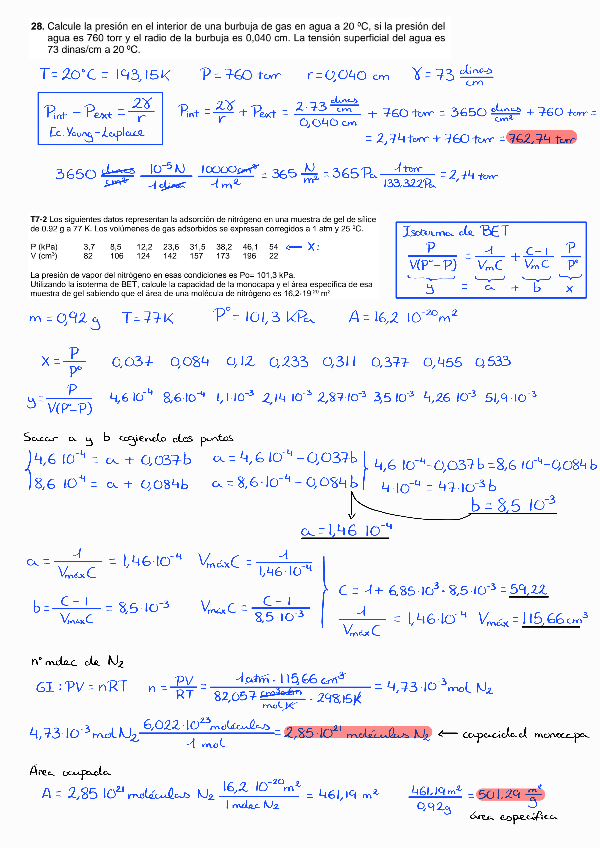 28. Calcule la presión en el interior de una burbuja de gas en agua a 20 ºC, si la presión del
agua es 760 torr y el radio de la burbuja es 0,040 cm. La tensión superficial del agua es
73 dinas/cm a 20 ºC.
T = 20°C = 193,15K P = 760 torr r = 0,040 cm γ = 73 dinas/cm
Pint - Pext = 2γ/r
Ec. Young-Laplace
Pint = 2γ/r + Pext = 2·73 dinas/cm / 0,040 cm + 760 torr = 3650 dinas/cm² + 760 torr =
= 2,74 torr + 760 torr = 762,74 torr
3650 dinas/cm² 10⁻⁵N/1 dina 10000cm²/1m² = 365 N/m² = 365 Pa 1 torr/133.322Pa = 2,74 torr
T7-2 Los siguientes datos representan la adsorción de nitrógeno en una muestra de gel de sílice
de 0.92 g a 77 K. Los volúmenes de gas adsorbidos se expresan corregidos a 1 atm y 25 ºC.
P (kPa) 3,7 8,5 12,2 23,6 31,5 38,2 46,1 54 ← X:
V (cm³) 82 106 124 142 157 173 196 22
La presión de vapor del nitrógeno en esas condiciones es Po= 101,3 kPa.
Utilizando la isoterma de BET, calcule la capacidad de la monocapa y el área específica de esa
muestra de gel sabiendo que el área de una molécula de nitrógeno es 16,2·10⁻²⁰ m²
Isoterma de BET
P/V(P°-P) = 1/VmC + C-1/VmC P/P°
y = a + b x
m = 0,92 g T = 77K P° = 101,3 kPa A = 16,2 10⁻²⁰ m²
X = P/P° 0,037 0,084 0,12 0,233 0,311 0,377 0,455 0,533
y = P/V(P°-P) 4,6 10⁻⁴ 8,6·10⁻⁴ 1,1·10⁻³ 2,14 10⁻³ 2,87·10⁻³ 3,5 10⁻³ 4,26 10⁻³ 51,9·10⁻³
Sacar a y b cogiendo dos puntos
4,6 10⁻⁴ = a + 0,037b a = 4,6 10⁻⁴ - 0,037b 4,6 10⁻⁴ - 0,037b = 8,6 10⁻⁴ - 0,084b
8,6 10⁻⁴ = a + 0,084b a = 8,6·10⁻⁴ - 0,084b 4·10⁻⁴ = 47·10⁻³b
b = 8,5 10⁻³
a = 1,46 10⁻⁴
a = 1/VmáxC = 1,46·10⁻⁴ VmáxC = 1/1,46·10⁻⁴
C = 1 + 6,85·10³ · 8,5·10⁻³ = 59,22
b = C-1/VmáxC = 8,5·10⁻³ VmáxC = C-1/8,5 10⁻³
1/VmáxC = 1,46·10⁻⁴ Vmáx = 115,66 cm³
nº molec de N₂
GI: PV = nRT n = PV/RT = 1 atm · 115,66 cm³ / 82,057 cm³ atm/mol K · 298,15K = 4,73·10⁻³ mol N₂
4,73·10⁻³ mol N₂ 6,022·10²³ moléculas/1 mol = 2,85·10²¹ moléculas N₂ ← capacidad monocapa
Área ocupada
A = 2,85 10²¹ moléculas N₂ 16,2 10⁻²⁰ m²/1 molec N₂ = 461,19 m² 461,19 m²/0,92g = 501,29 m²/g
área específica